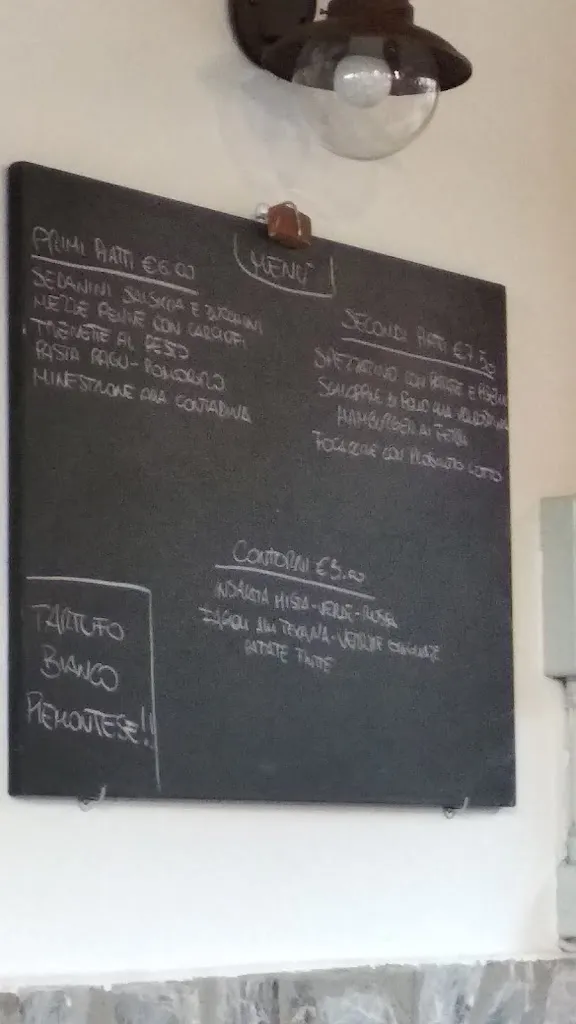 MENÙ
PRIMI PIATTI €6.00
SEDANINI SALSICCIA E ZUCCHINI
MEZZE PENNE CON CARCIOFI
TRENETTE AL PESTO
PASTA RAGÙ - POMODORO
MINESTRONE ALLA CONTADINA
SECONDI PIATTI €7.50
SPEZZATINO CON PATATE E PISELLI
SCALOPPINE DI POLLO ALLA VALDOSTANA
HAMBURGER AI FERRI
FOCACCINE CON PROSCIUTTO COTTO
CONTORNI €3.00
INSALATA MISTA - VERDE - RUSSA
FAGIOLI ALLA - VERDURE GRIGLIATE
PATATE FRITTE
TARTUFO
BIANCO
PIEMONTESE!!